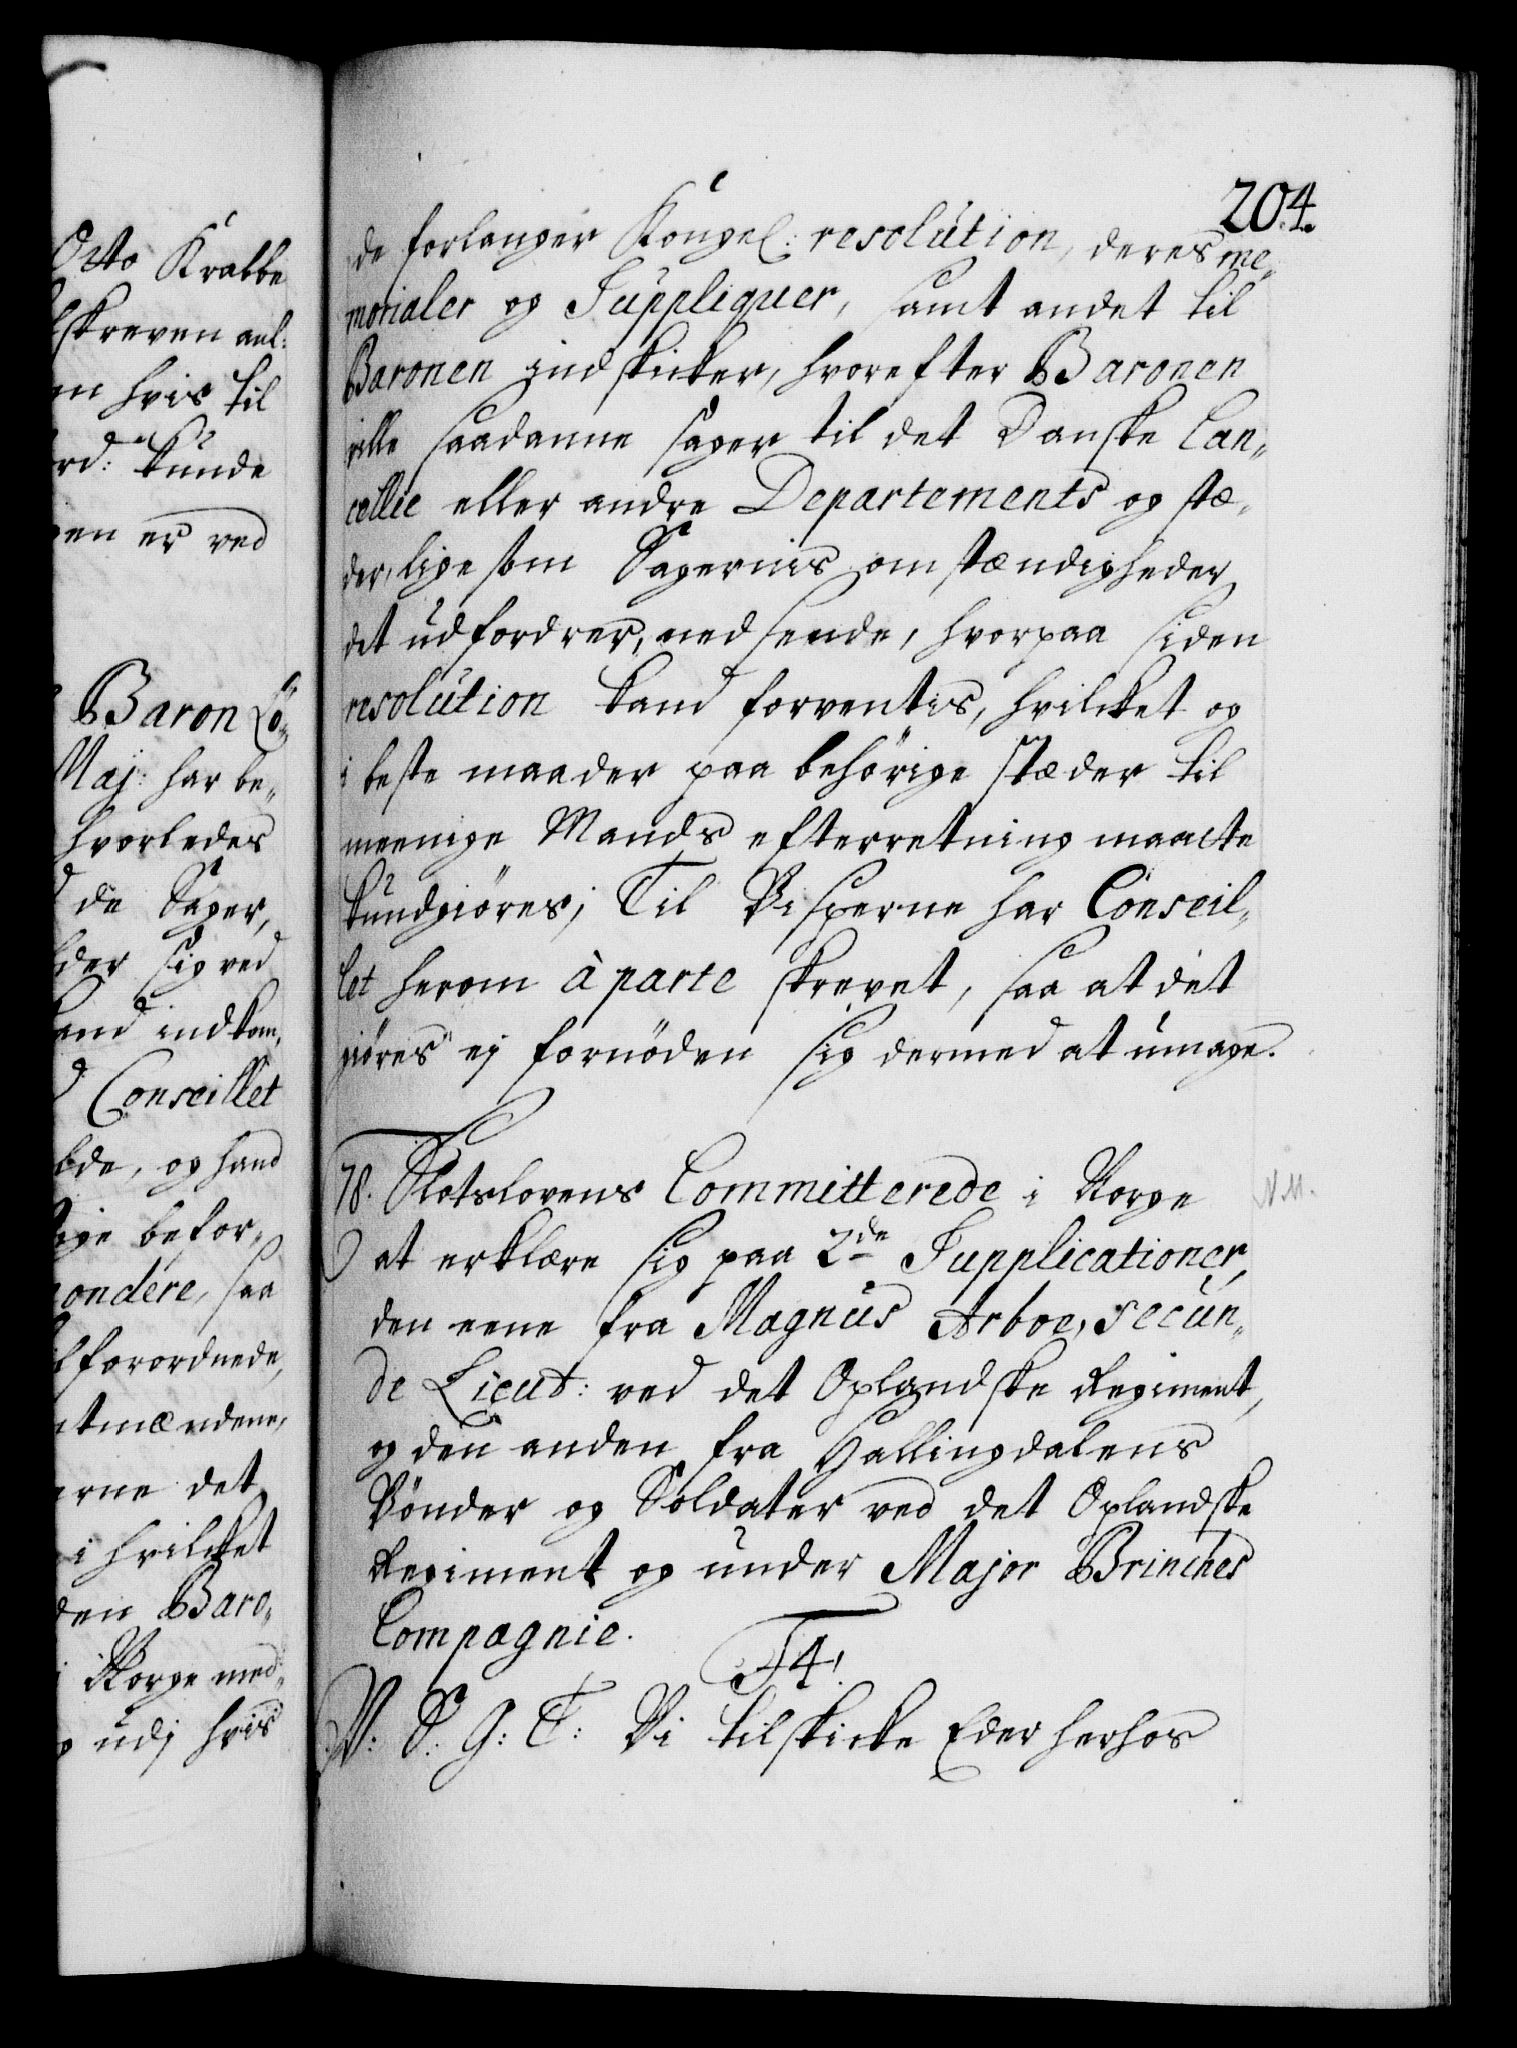 Otto Krabbe
skreven anl:
hvis til
kunde
er ved
Baron Lö¬
Maj: har be¬
hvorledes
de Sager,
sig ved
indkom¬
Conseillet
og hand
befor¬
pondere, saa
forordnede,
det
i hvilcket
den Baro¬
i Norge med¬
udj hvis
204.
de forlanger Kongel: resolution, deres me¬
morialer og Suppliquer, samt andet til
Baronen indskicker, hvorefter Baronen
ville saadanne sager til det Danske Can¬
cellie eller andre Departements og stæ¬
der, ligesom Sagernis omstændigheder
det udfordrer, nedsende, hvorpaa siden
resolution kand forventis, hvilcket og
i beste maader paa behörige stæder til
meenige Mands efterretning maatte
kundgiöres; Til Bisperne har Conseil¬
let herom à parte skrevet, saa at det
giöres ej fornöden sig dermed at umage.
78. Slotslovens Committerede i Norge
N.M.
at erklære sig paa 2de Supplicationer,
den eene fra Magnus Arboe, secun¬
de Lieut: ved det Oplandske Regiment,
og den anden fra Hallingdalens
Bönder og Soldater ved det Oplandske
Regiment og under Major Brinches
Compagnie.
F4!
V: S: G: T: Vi tilskicke Eder herhos